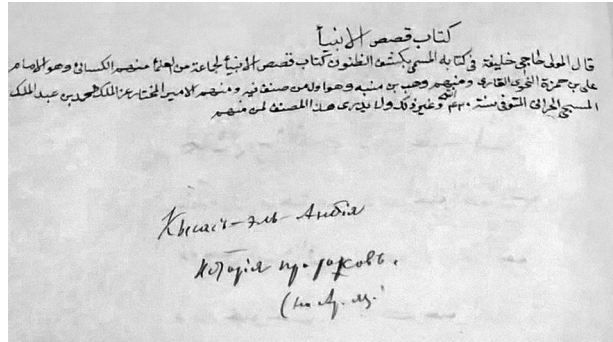 كتاب قصص الانبيأ
قال المولى حاجى خليفة فى كتابه المسمى بكشف الظنون كتاب قصص الانبيأ لجاعة من العلمأ منهم الكسائى وهو الامام
على بن حمزة النحوى القارى ومنهم وهب بن منبه وهو اول من صنف فيه ومنهم الامير المختار عز الملك محمد بن عبد الملك
المسبحى الحرانى المتوفى سنة ٤٢٠ وغير ذلك ولا يدرى هذا المصنف لمن منهم
Кысасъ-эль-Анбія
Исторія пророковъ.
(на Ар. яз.